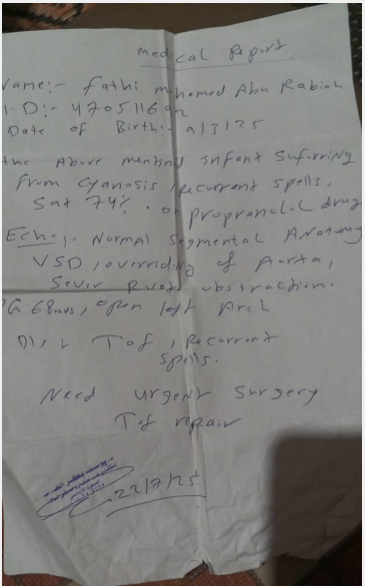 Medical Report
Name:- Fathi Mohamed Abu Rabiah
I.D:- 470511692
Date of Birth:- 9/3/25
the Above mentind infant Suforring
From Cyanosis, recurrant spells,
Sat 74% . on propranolol drug
Echo:- Normal Segmental Anatomy
VSD, overriding of Aorta,
Sever RVOT obstraction.
PG 68mm, open left Arch
TOF, Recurrent
spells.
Need urgent Surgery
TOF repair
22/7/25